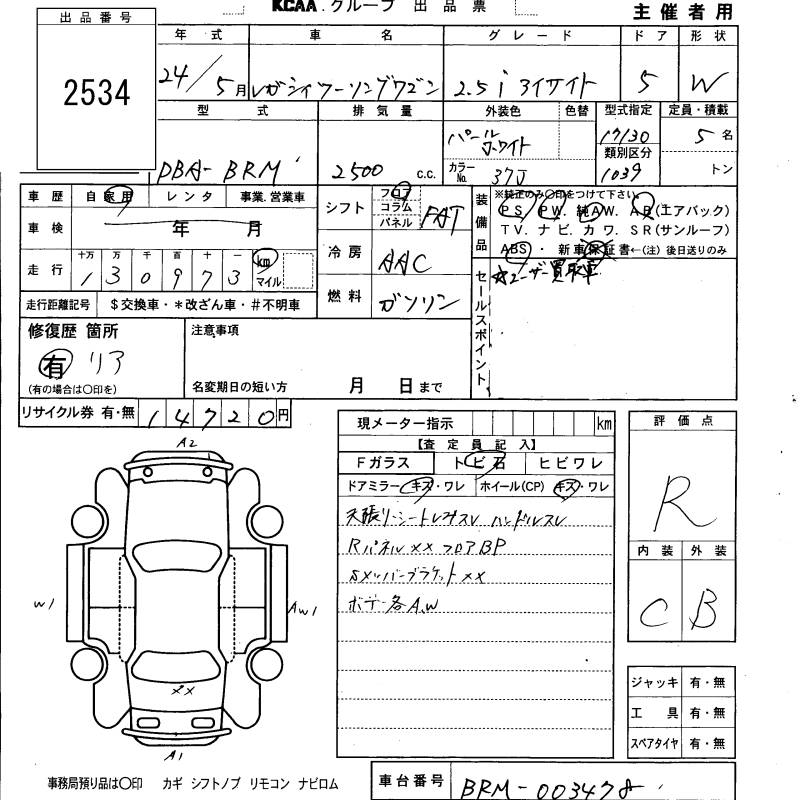 KCAA.グループ 出品票
主催者用
出品番号
2534
年式 車名 グレード ドア 形状
24/5月 レガシィツーリングワゴン 2.5i アイサイト 5 W
型式 排気量 外装色 色替 型式指定 定員・積載
DBA-BRM 2500 c.c. パールホワイト 17130 5名
類別区分
カラーNo. 37J 1039 トン
車歴 自家用 レンタ 事業.営業車
車検 年 月
走行 十万 万 千 百 十 一 km マイル
1 3 0 9 7 3
走行距離記号 $交換車・*改ざん車・#不明車
シフト フロア コラム パネル FAT
冷房 AAC
燃料 ガソリン
装備品
※純正のみ〇印をつけて下さい
PS. PW. 純AW. AB(エアバック)
TV. ナビ. カワ. SR(サンルーフ)
ABS・ 新車保証書←(注)後日送りのみ
セールスポイント
☆ユーザー買取車
修復歴 箇所
有 リア
(有の場合は〇印を)
注意事項
名変期日の短い方 月 日まで
リサイクル券 有・無 14720円
現メーター指示 km
【査定員記入】
Fガラス トビ石 ヒビワレ
ドアミラー キズ・ワレ ホイール(CP) キズ・ワレ
天張リーシートレザスレ ハンドルスレ
Rパネル×× フロアBP
ボデー各A.W
評価点
R
内装 外装
C B
A2
W1
AW1
××
A1
ジャッキ 有・無
工具 有・無
スペアタイヤ 有・無
事務局預り品は〇印 カギ シフトノブ リモコン ナビロム
車台番号 BRM-003478